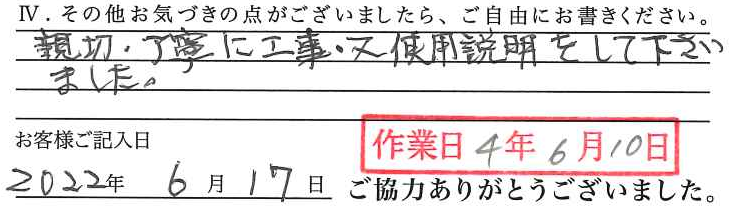 Ⅳ．その他お気づきの点がございましたら、ご自由にお書きください。
親切・丁寧に工事・又使用説明をして下さい
ました。
お客様ご記入日
作業日 4年 6月10日
2022年 6月 17日
ご協力ありがとうございました。